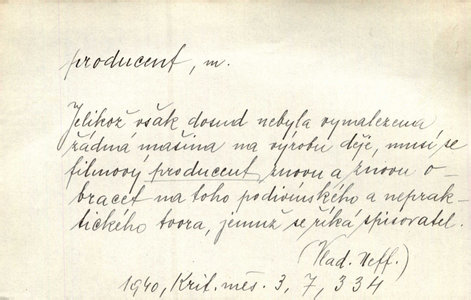 producent, m.
Jelikož však dosud nebyla vynalezena
žádná mašina na výrobu děje, musí se
filmový producent znovu a znovu o-
bracet na toho podivínského a neprak-
tického tvora, jemuž se říká spisovatel.
(Vlad. Neff.)
1940, Krit. měs. 3, 7, 334